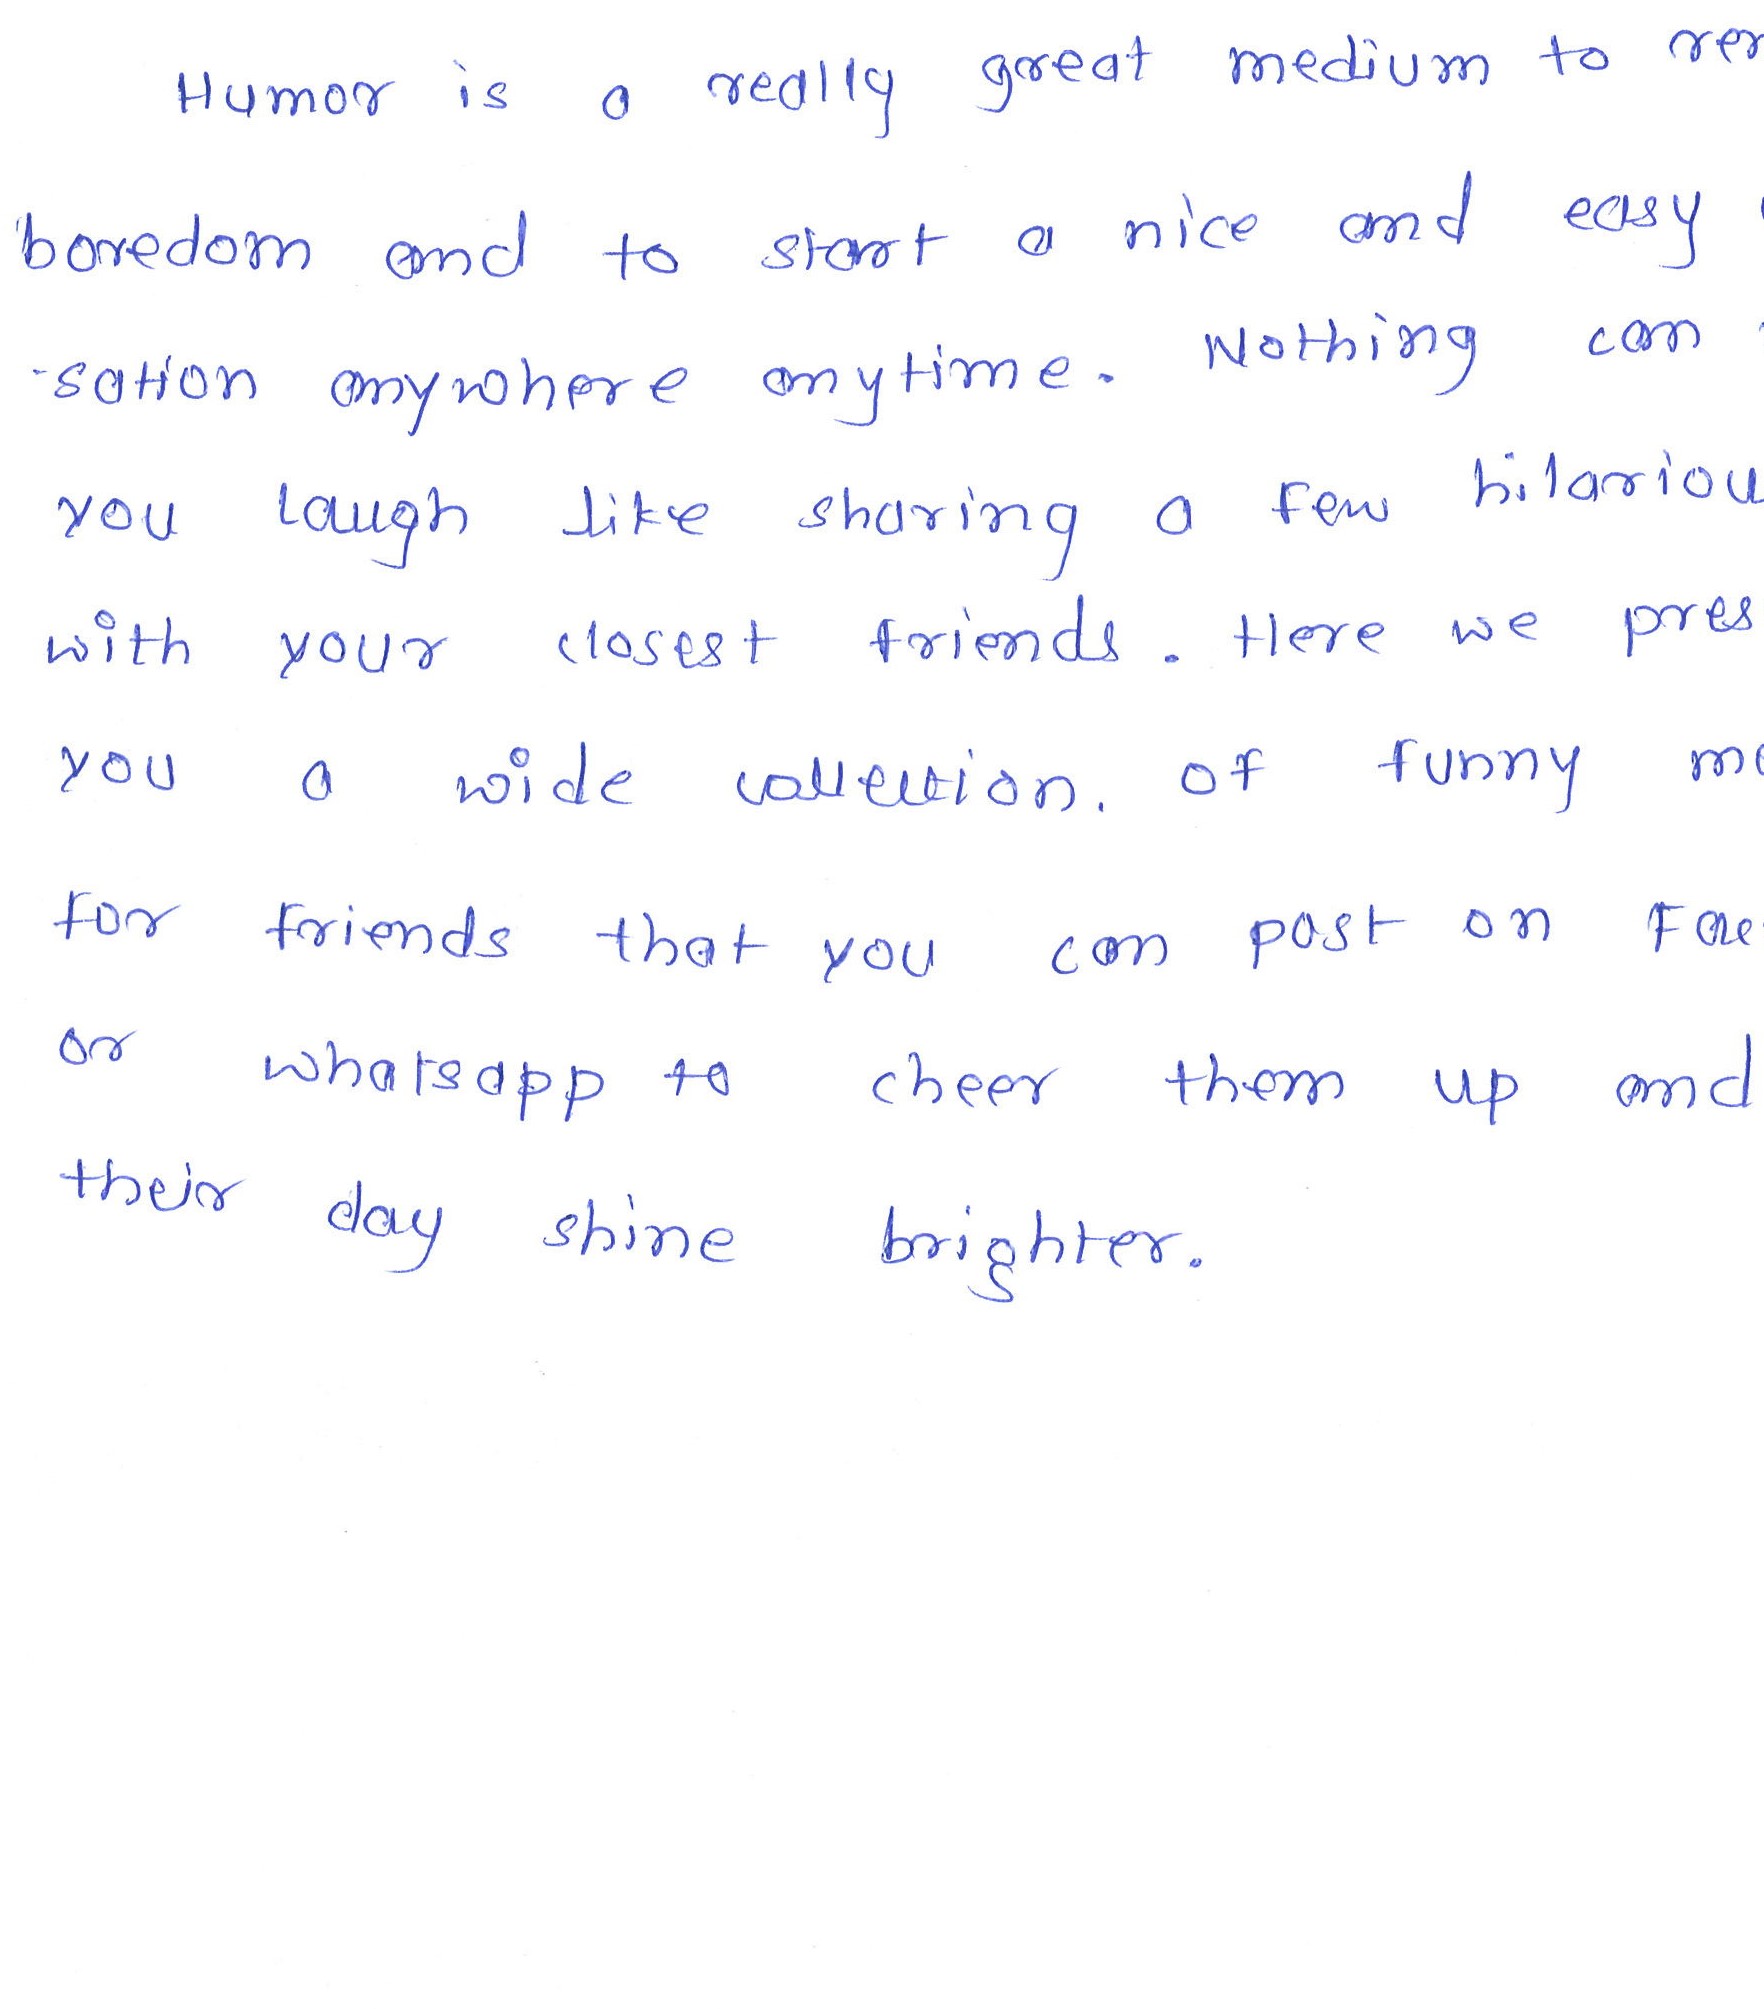 Humor is a really great medium to rem
boredom and to start a nice and easy
-sation anywhere anytime. Nothing can
you laugh like sharing a few hilariou
with your closest friends. Here we pres
you a wide collection. of funny me
for friends that you can post on Face
or whatsapp to cheer them up and
their day shine brighter.